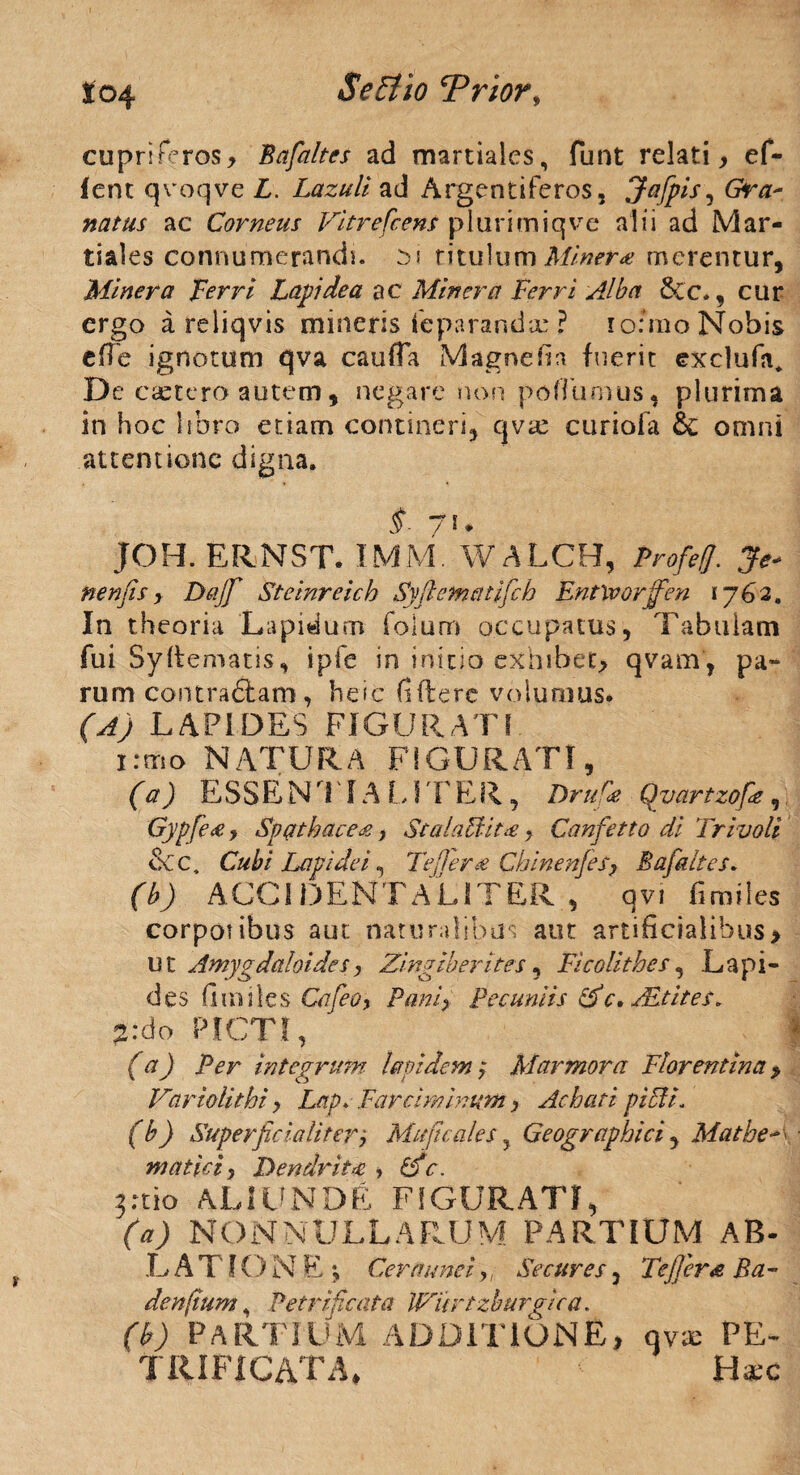 104 Sectio Prior,
cupriferos, Baſaltes ad martiales, ſunt relati, eſ-
ſent qvoqve L. Lazuli ad Argentiferos, Jaſpis, Gra-
natus ac Corneus Vitreſcens plurimiqve alii ad Mar-
tiales connumerandi. Si titulum Mineræ merentur,
Minera Ferri Lapidea ac Minera Ferri Alba &c., cur
ergo à reliqvis mineris ſeparandæ? 10:mo Nobis
eſſe ignotum qva cauſſa Magneſia fuerit excluſa.
De cætero autem, negare non poſſumus, plurima
in hoc libro etiam contineri, qvæ curioſa & omni
attentione digna.
§. 71.
JOH. ERNST. IMM. WALCH, Profeſſ. Je-
nenſis, Daſſ Steinreich Syſtematiſch Entworffen 1762.
In theoria Lapidum ſolum occupatus, Tabulam
ſui Syſtematis, ipſe in initio exhibet, qvam, pa-
rum contractam, heic ſiſtere volumus.
(A) LAPIDES FIGURATI
1:mo NATURA FIGURATI,
(a) ESSENTIALITER, Druſæ Qvartzoſæ,
Gypſeæ, Spathaceæ, Stalactitæ, Canfetto di Trivoli
&c. Cubi Lapidei, Teſſeræ Chinenſes, Baſaltes.
(b) ACCIDENTALITER, qvi ſimiles
corporibus aut naturalibus aut artificialibus,
ut Amygdaloides, Zingiberites, Ficolithes, Lapi-
des ſimiles Cafeo, Pani, Pecuniis &c. Ætites.
2:do PICTI,
(a) Per integrum lapidem; Marmora Florentina,
Variolithi, Lap. Farciminum, Achati picti.
(b) Superficialiter; Muſicales, Geographici, Mathe-
matici, Dendritæ, &c.
3:tio ALIUNDE FIGURATI,
(a) NONNULLARUM PARTIUM AB-
LATIONE; Ceraunei, Secures, Teſſeræ Ba-
denſium, Petrificata Würtzburgica.
(b) PARTIUM ADDITIONE, qvæ PE-
TRIFICATA. Hæc